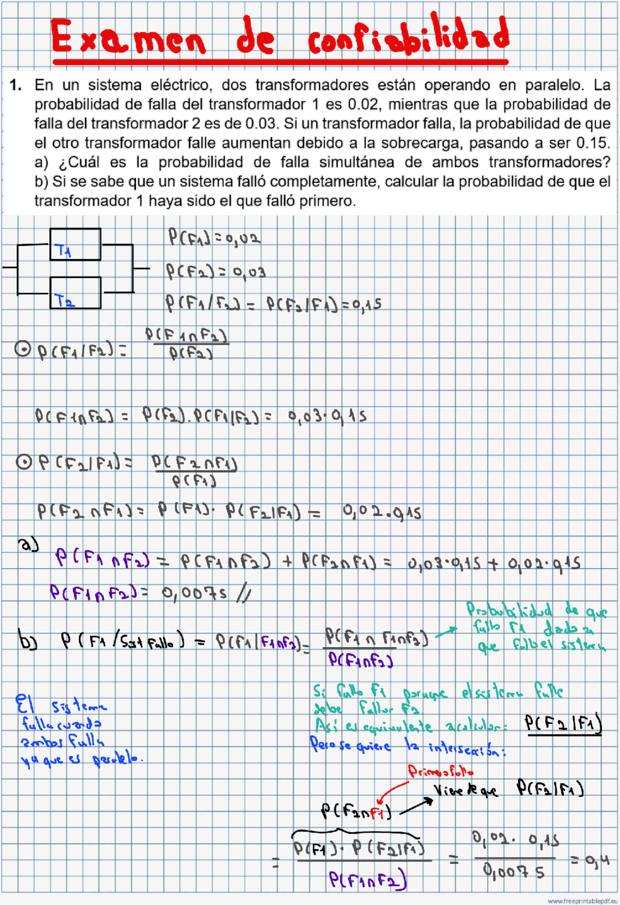 Examen de confiabilidad
1. En un sistema eléctrico, dos transformadores están operando en paralelo. La
probabilidad de falla del transformador 1 es 0.02, mientras que la probabilidad de
falla del transformador 2 es de 0.03. Si un transformador falla, la probabilidad de que
el otro transformador falle aumentan debido a la sobrecarga, pasando a ser 0.15.
a) ¿Cuál es la probabilidad de falla simultánea de ambos transformadores?
b) Si se sabe que un sistema falló completamente, calcular la probabilidad de que el
transformador 1 haya sido el que falló primero.
T1
T2
P(F1)=0,02
P(F2)=0,03
P(F1/F2)= P(F2|F1)=0,15
P(F1/F2)= P(F1∩F2)/P(F2)
P(F1∩F2)= P(F2).P(F1|F2)= 0,03·0,15
P(F2|F1)= P(F2∩F1)/P(F1)
P(F2∩F1)= P(F1)· P(F2|F1)= 0,02.0,15
a) P(F1∩F2)= P(F1∩F2) + P(F2∩F1)= 0,03·0,15 + 0,02·0,15
P(F1∩F2)= 0,0075 //
b) P(F1/Sist Fallo)= P(F1|F1∩F2)= P(F1∩F1∩F2)/P(F1∩F2)
Probabilidad de que
fallo F1 dado a
que falló el sistema
El sistema
falla cuando
ambos falla
ya que es paralelo.
Si fallo F1 para que el sistema falle
debe fallar F2
Así es equivalente a calcular: P(F2|F1)
Pero se quiere la intersección:
Primero falló
P(F2∩F1)
Viene de que P(F2|F1)
= P(F1)· P(F2|F1)/P(F1∩F2) = 0,02. 0,15/0,0075 = 0,4
www.freeprintablepdf.eu